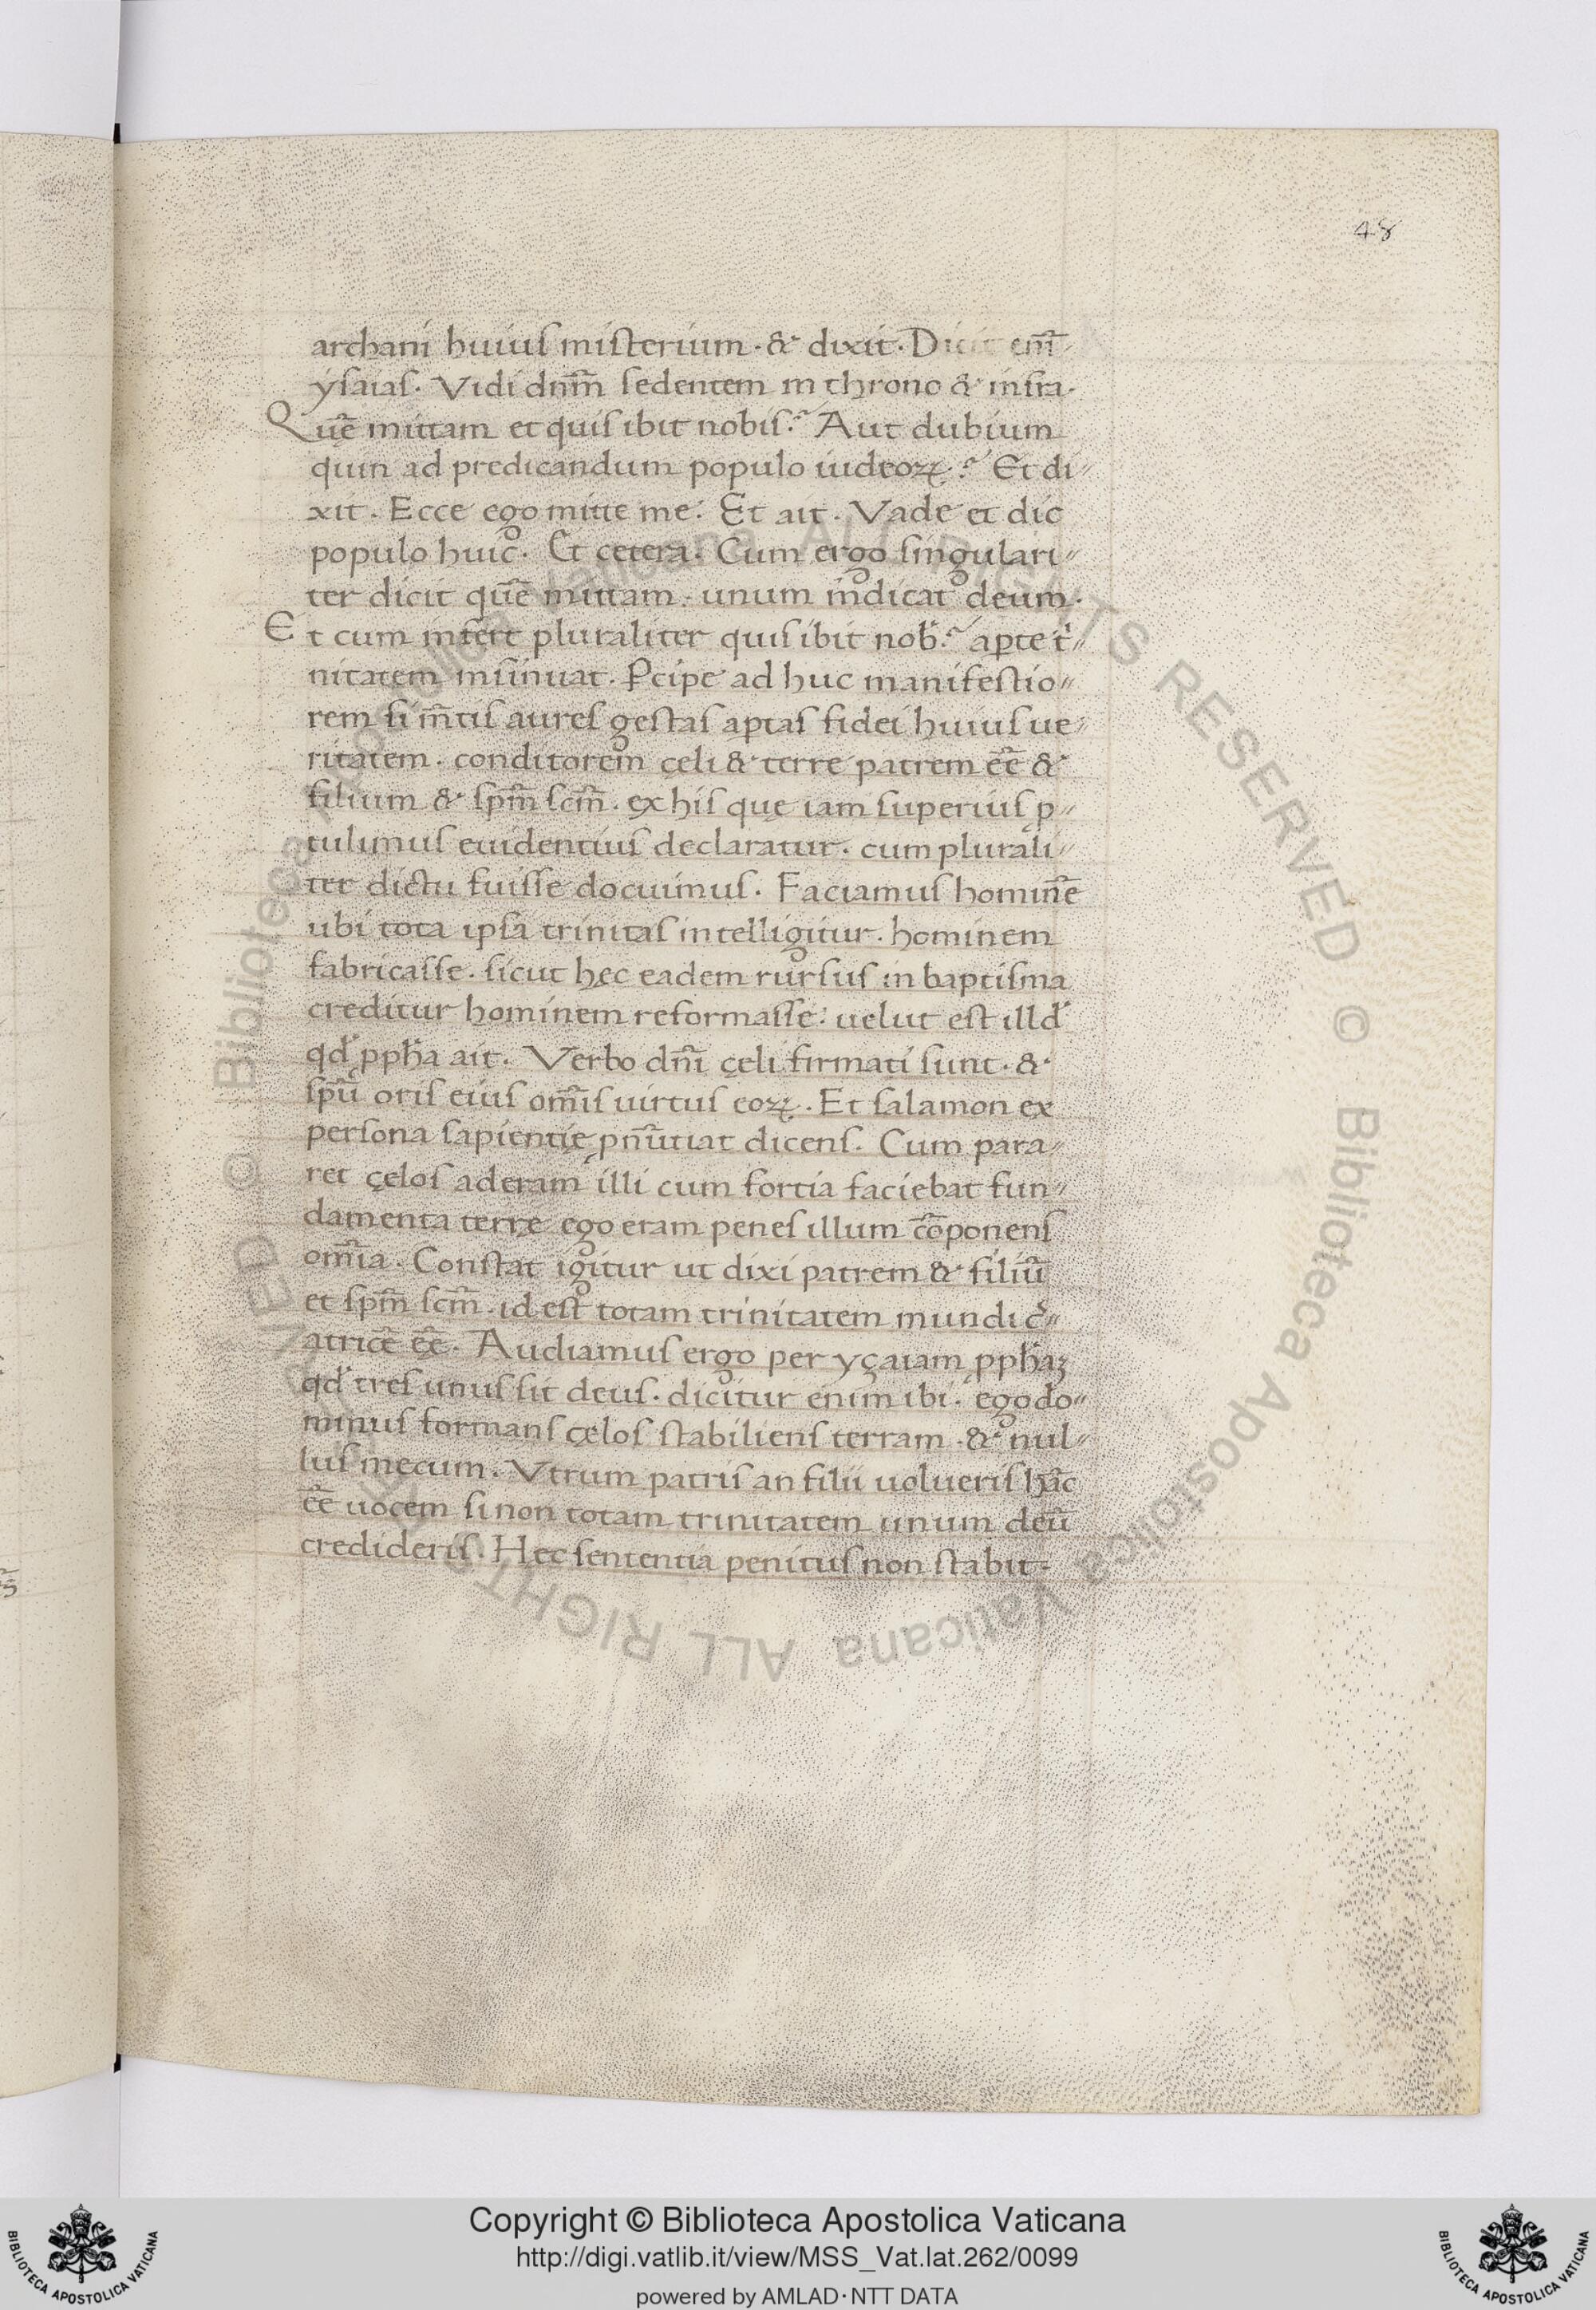 48
archani huiuſ miſterium · & dixit · Dicit em̄
yſaiaſ · Vidi dnm̄ ſedentem in throno & infra ·
Quē mittam et quiſ ibit nobiſ? Aut dubium
quin ad predicandum populo iudeoꝝ? Et di〃
xit · Ecce ego mitte me · Et ait · Vade et dic
populo huic · Et cetera · Cum ergo ſingulari〃
ter dicit quē mittam · unum indicat deum ·
Et cum infert pluraliter quiſ ibit nob̄? aꝑte tⁱ〃
nitatem inſinuat · Ꝑcipe ad huc manifeſtio〃
rem ſi m̄tiſ aureſ geſtaſ aꝑtaſ fidei huiuſ ue〃
ritatem · conditorem çeli & terre patrem eē̄ &
filium & ſpm̄ ſcm̄ · ex hiſ quę iam ſuperiuſ ꝓ〃
tulimuſ euidentiuſ declaratur · cum plurali〃
ter dictu fuiſſe docuimuſ · Faciamuſ hominē
ubi tota ipſa trinitaſ intelligitur · hominem
fabricaſſe · ſicut hęc eadem rurſuſ in baptiſma
creditur hominem reformaſſe · uelut eſt illd̄
qd̄ ꝓph̄a ait · Verbo dnī çeli firmati ſunt · &
ſpū oriſ eiuſ om̄iſ uirtuſ eoꝝ · Et ſalamon ex
perſona ſapientię ꝓnūtiat dicenſ · Cum para〃
ret çeloſ aderam illi cum fortia faciebat fun〃
damenta terrę ego eram peneſ illum cōponenſ
om̄ia · Conſtat igitur ut dixi patrem & filiū
et ſpm̄ ſcm̄ · id eſt totam trinitatem mundi cͬ〃
atricē eē · Audiamuſ ergo per yçaiam ꝓph̄aꝫ
qd̄ treſ unuſ ſit deuſ · dicitur enim ibi · ego do〃
minuſ formanſ çeloſ ſtabilienſ terram · & nul〃
luſ mecum · Vtrum patriſ an filii uolueriſ hāc
eē uocem ſi non totam trinitatem unum deū
credideriſ · Hec ſententia penituſ non ſtabit ·
Copyright © Biblioteca Apostolica Vaticana
http://digi.vatlib.it/view/MSS_Vat.lat.262/0099
powered by AMLAD·NTT DATA
BIBLIOTECA APOSTOLICA VATICANA
BIBLIOTECA APOSTOLICA VATICANA
© Biblioteca Apostolica Vaticana ALL RIGHTS RESERVED © Biblioteca Apostolica Vaticana ALL RIGHTS RESERVED